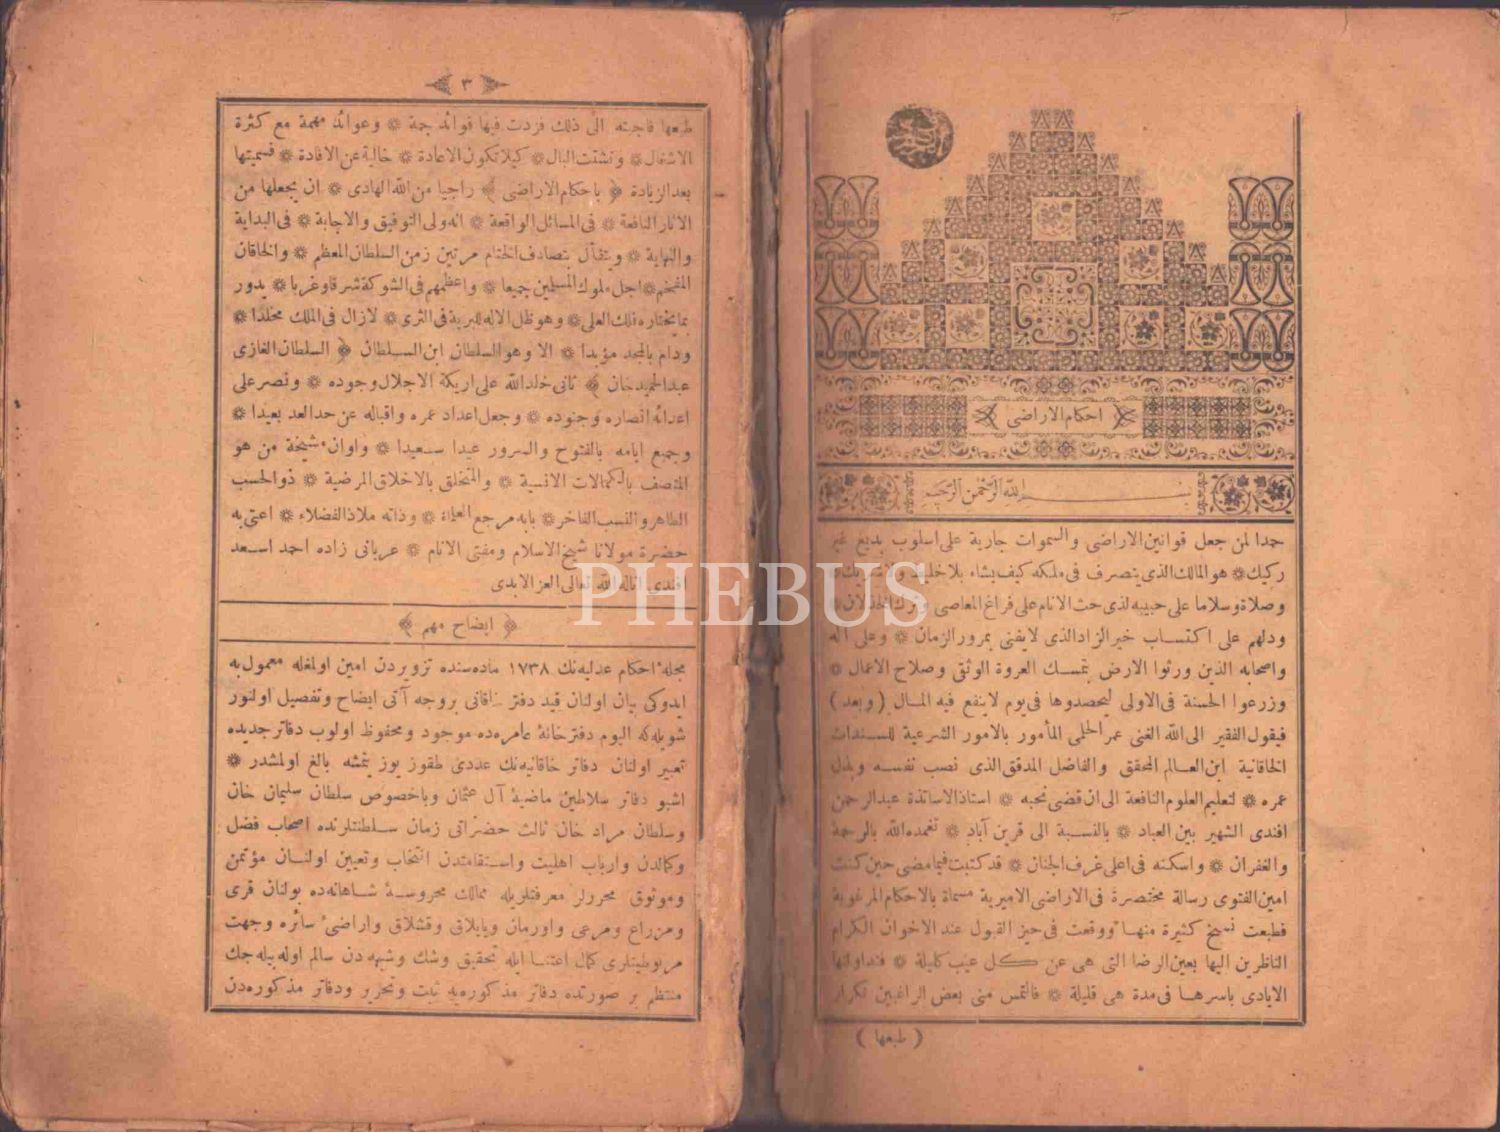 احكام الاراضى
بسم الله الرحمن الرحيم
حمدا لمن جعل قوانين الاراضى والسموات جارية على اسلوب بديع غير
ركيك ❋ هو المالك الذى يتصرف فى ملكه كيف يشاء بلا خليط ولا شريك ❋
وصلاة وسلاما على حبيبه لذى حث الانام على فراغ المعاصى وترك الخذلان ❋
ودلهم على اكتساب خير الزاد الذى لا يفنى بمرور الزمان ❋ وعلى آله
واصحابه الذين ورثوا الارض بتمسك العروة الوثقى وصلاح الاعمال ❋
وزرعوا الحسنة فى الاولى ليحصدوها فى يوم لا ينفع فيه المال (وبعد)
فيقول الفقير الى الله الغنى عمر الحلمى المأمور بالامور الشرعية للسندات
الخاقانية ابن العالم المحقق والفاضل المدقق الذى نصب نفسه وبذل
عمره ❋ لتعليم العلوم النافعة الى ان قضى نحبه ❋ استاذ الاساتذة عبدالرحمن
افندى الشهير بين العباد ❋ بالنسبة الى قرين آباد ❋ تغمده الله بالرحمة
والغفران ❋ واسكنه فى اعلى غرف الجنان ❋ قد كتبت فيما مضى حين كنت
امين الفتوى رسالة مختصرة فى الاراضى الاميرية مسماة بالاحكام المرغوبة
فطبعت نسخ كثيرة منها ووقعت فى حيز القبول عند الاخوان الكرام
الناظرين اليها بعين الرضا التى هى عن كل عيب كليلة ❋ فتداولتها
الايادى باسرها فى مدة هى قليلة ❋ فالتمس منى بعض الراغبين تكرار
(طبعها)
٣
طبعها فاجبته الى ذلك فزدت فيها فوائد جمة ❋ وعوائد مهمة مع كثرة
الاشغال ❋ وتشتت البال ❋ كيلا تكون الاعادة ❋ خالية عن الافادة ❋ فسميتها
بعد الزيادة ﴿ باحكام الاراضى ﴾ راجيا من الله الهادى ❋ ان يجعلها من
الاثار النافعة ❋ فى المسائل الواقعة ❋ انه ولى التوفيق والاجابة ❋ فى البداية
والنهاية ❋ ويتفأل بتصادف الختام مرتين زمن السلطان المعظم ❋ والخاقان
المفخم ❋ اجل ملوك المسلمين جميعا ❋ واعظمهم فى الشوكة شرقا وغربا ❋ يدور
بما يختاره فلك العلى ❋ وهو ظل الاله للبرية فى الثرى ❋ لازال فى الملك مخلدا ❋
ودام بالمجد مؤبدا ❋ الا وهو السلطان ابن السلطان ﴿ السلطان الغازى
عبدالحميد خان ﴾ ثانى خلد الله على اريكة الاجلال وجوده ❋ ونصر على
اعدائه انصاره وجنوده ❋ وجعل اعداد عمره واقباله عن حد العد بعيدا ❋
وجميع ايامه بالفتوح والسرور عيدا سعيدا ❋ واوان مشيخة من هو
المتصف بالكمالات الانسية ❋ والمتخلق بالاخلاق المرضية ❋ ذو الحسب
الطاهر والنسب الفاخر ❋ بابه مرجع العلماء ❋ وذاته ملاذ الفضلاء ❋ اعنى به
حضرة مولانا شيخ الاسلام ومفتى الانام ❋ عريانى زاده احمد اسعد
افندى اناله الله تعالى العز الابدى
﴿ ايضاح مهم ﴾
مجلۀ احكام عدليه‌نك ١٧٣٨ ماده‌سنده تزويردن امين اولمغله معمول به
ايدوكى بيان اولنان قيد دفتر خاقانى بروجه آتى ايضاح وتفصيل اولنور
شويله‌كه اليوم دفترخانۀ عامره‌ده موجود ومحفوظ اولوب دفاتر جديده
تعبير اولنان دفاتر خاقانيه‌نك عددى طقوز يوز يتمشه بالغ اولمشدر ❋
اشبو دفاتر سلاطين ماضيۀ آل عثمان وباخصوص سلطان سليمان خان
وسلطان مراد خان ثالث حضراتى زمان سلطنتلرنده اصحاب فضل
وكمالدن وارباب اهليت واستقامتدن انتخاب وتعيين اولنان مؤتمن
وموثوق محررلر معرفتلريله ممالك محروسۀ شاهانه‌ده بولنان قرى
ومزراع ومرعى واورمان ويايلاق وقشلاق واراضئ سائره وجهت
مربوطيتلرى كمال اعتنا ايله تحقيق وشك وشبهه‌دن سالم اوله بيله‌جك
منتظم بر صورتده دفاتر مذكوره‌يه ثبت وتحرير ودفاتر مذكوره‌دن
PHEBUS